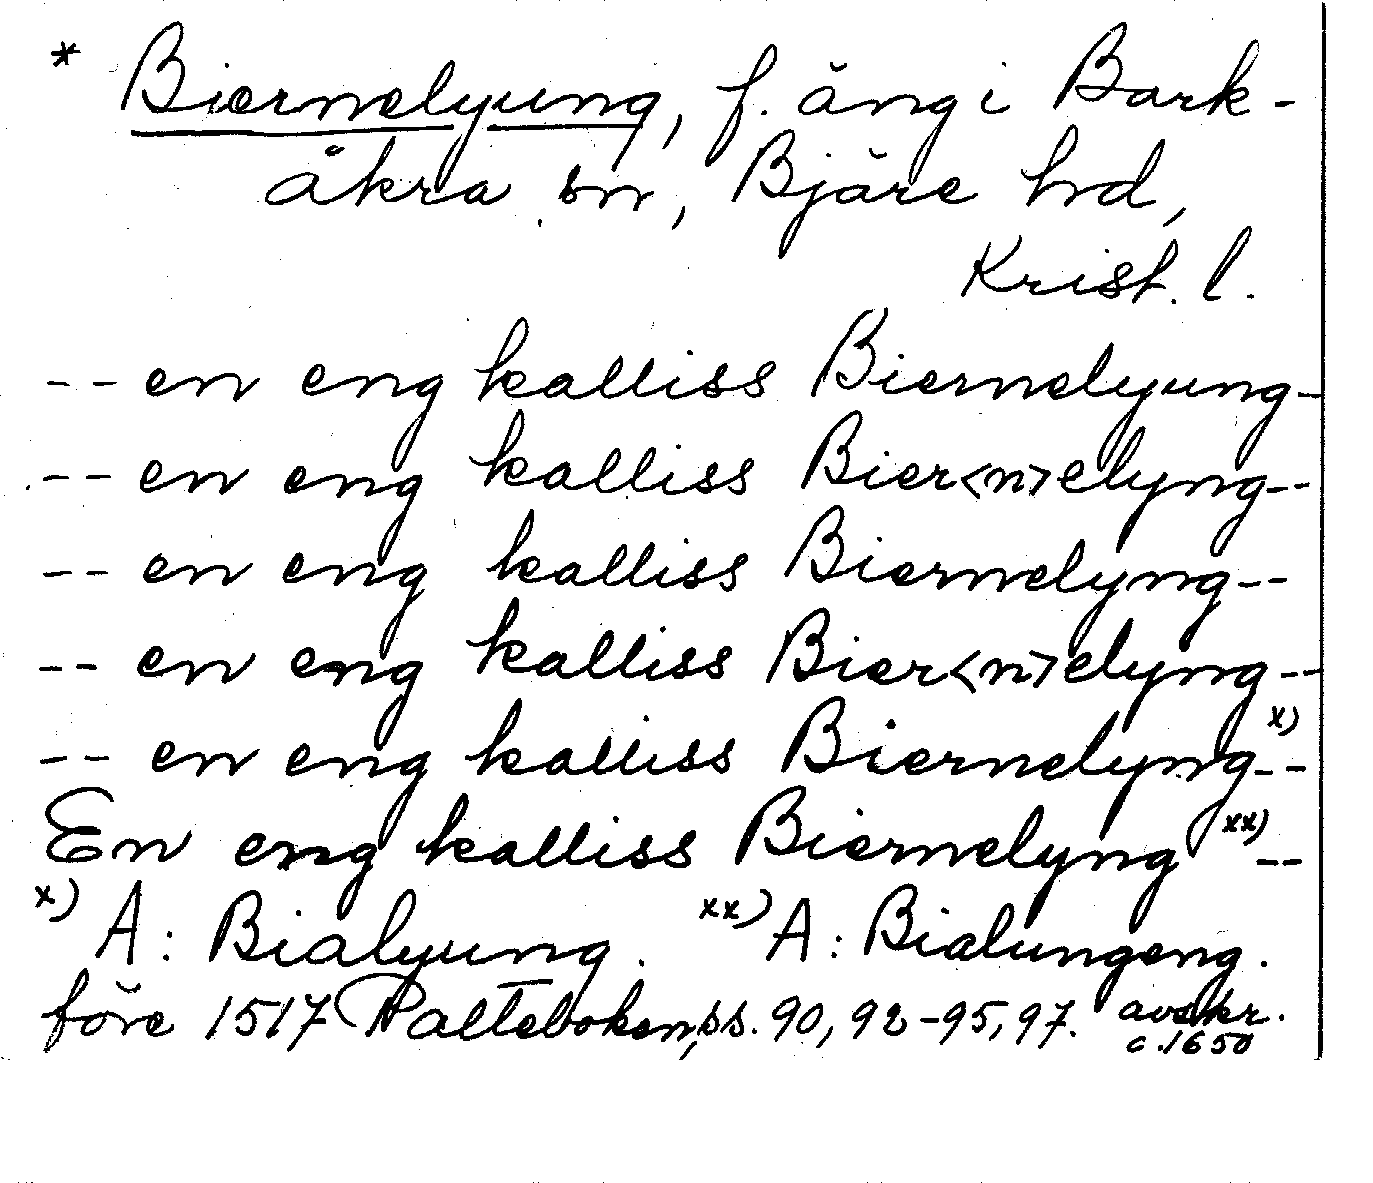 * Biernelyung, f. äng i Bark-
åkra sn, Bjäre hd,
Krist. l.
-- en eng kalliss Biernelyung-
-- en eng kalliss Bier<n>elyng--
-- en eng kalliss Biernelyng--
-- en eng kalliss Bier<n>elyng--
-- en eng kalliss Biernelyng x)--
En eng kalliss Biernelyng xx)--
x) A: Bialyung. xx) A: Bialungeng.
före 1517 Palteboken, ss. 90, 92-95, 97. avskr.
c. 1650